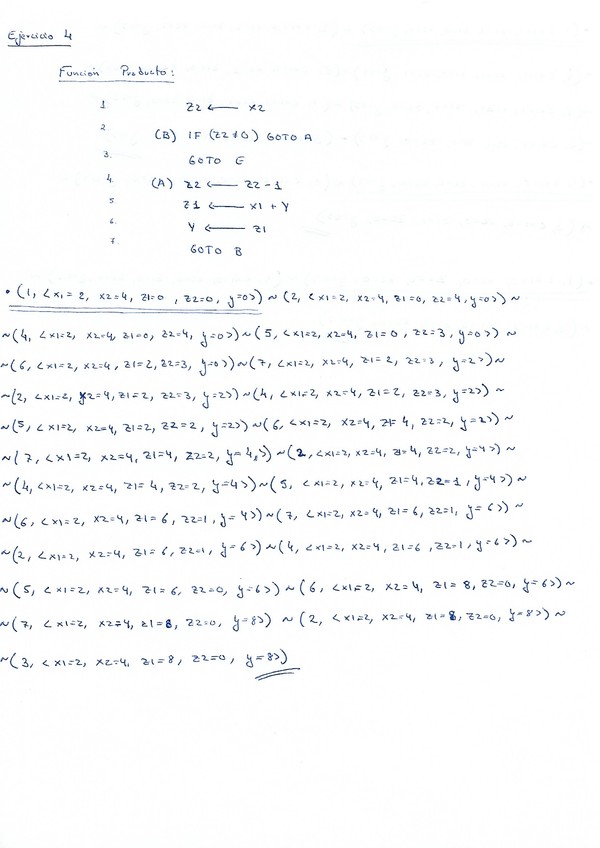 Ejercicio 4
Función Producto:
1. Z2 ← X2
2. (B) IF (Z2≠0) GOTO A
3. GOTO E
4. (A) Z2 ← Z2-1
5. Z1 ← X1 + Y
6. Y ← Z1
7. GOTO B
• (1, <x1=2, x2=4, z1=0, z2=0, y=0>) ~ (2, <x1=2, x2=4, z1=0, z2=4, y=0>) ~
~(4, <x1=2, x2=4, z1=0, z2=4, y=0>) ~ (5, <x1=2, x2=4, z1=0, z2=3, y=0>) ~
~(6, <x1=2, x2=4, z1=2, z2=3, y=0>) ~ (7, <x1=2, x2=4, z1=2, z2=3, y=2>) ~
~(2, <x1=2, x2=4, z1=2, z2=3, y=2>) ~ (4, <x1=2, x2=4, z1=2, z2=3, y=2>) ~
~(5, <x1=2, x2=4, z1=2, z2=2, y=2>) ~ (6, <x1=2, x2=4, z1=4, z2=2, y=2>) ~
~(7, <x1=2, x2=4, z1=4, z2=2, y=4,>) ~ (2, <x1=2, x2=4, z1=4, z2=2, y=4>) ~
~(4, <x1=2, x2=4, z1=4, z2=2, y=4>) ~ (5, <x1=2, x2=4, z1=4, z2=1, y=4>) ~
~(6, <x1=2, x2=4, z1=6, z2=1, y=4>) ~ (7, <x1=2, x2=4, z1=6, z2=1, y=6>) ~
~(2, <x1=2, x2=4, z1=6, z2=1, y=6>) ~ (4, <x1=2, x2=4, z1=6, z2=1, y=6>) ~
~(5, <x1=2, x2=4, z1=6, z2=0, y=6>) ~ (6, <x1=2, x2=4, z1=8, z2=0, y=6>) ~
~(7, <x1=2, x2=4, z1=8, z2=0, y=8>) ~ (2, <x1=2, x2=4, z1=8, z2=0, y=8>) ~
~(3, <x1=2, x2=4, z1=8, z2=0, y=8>)